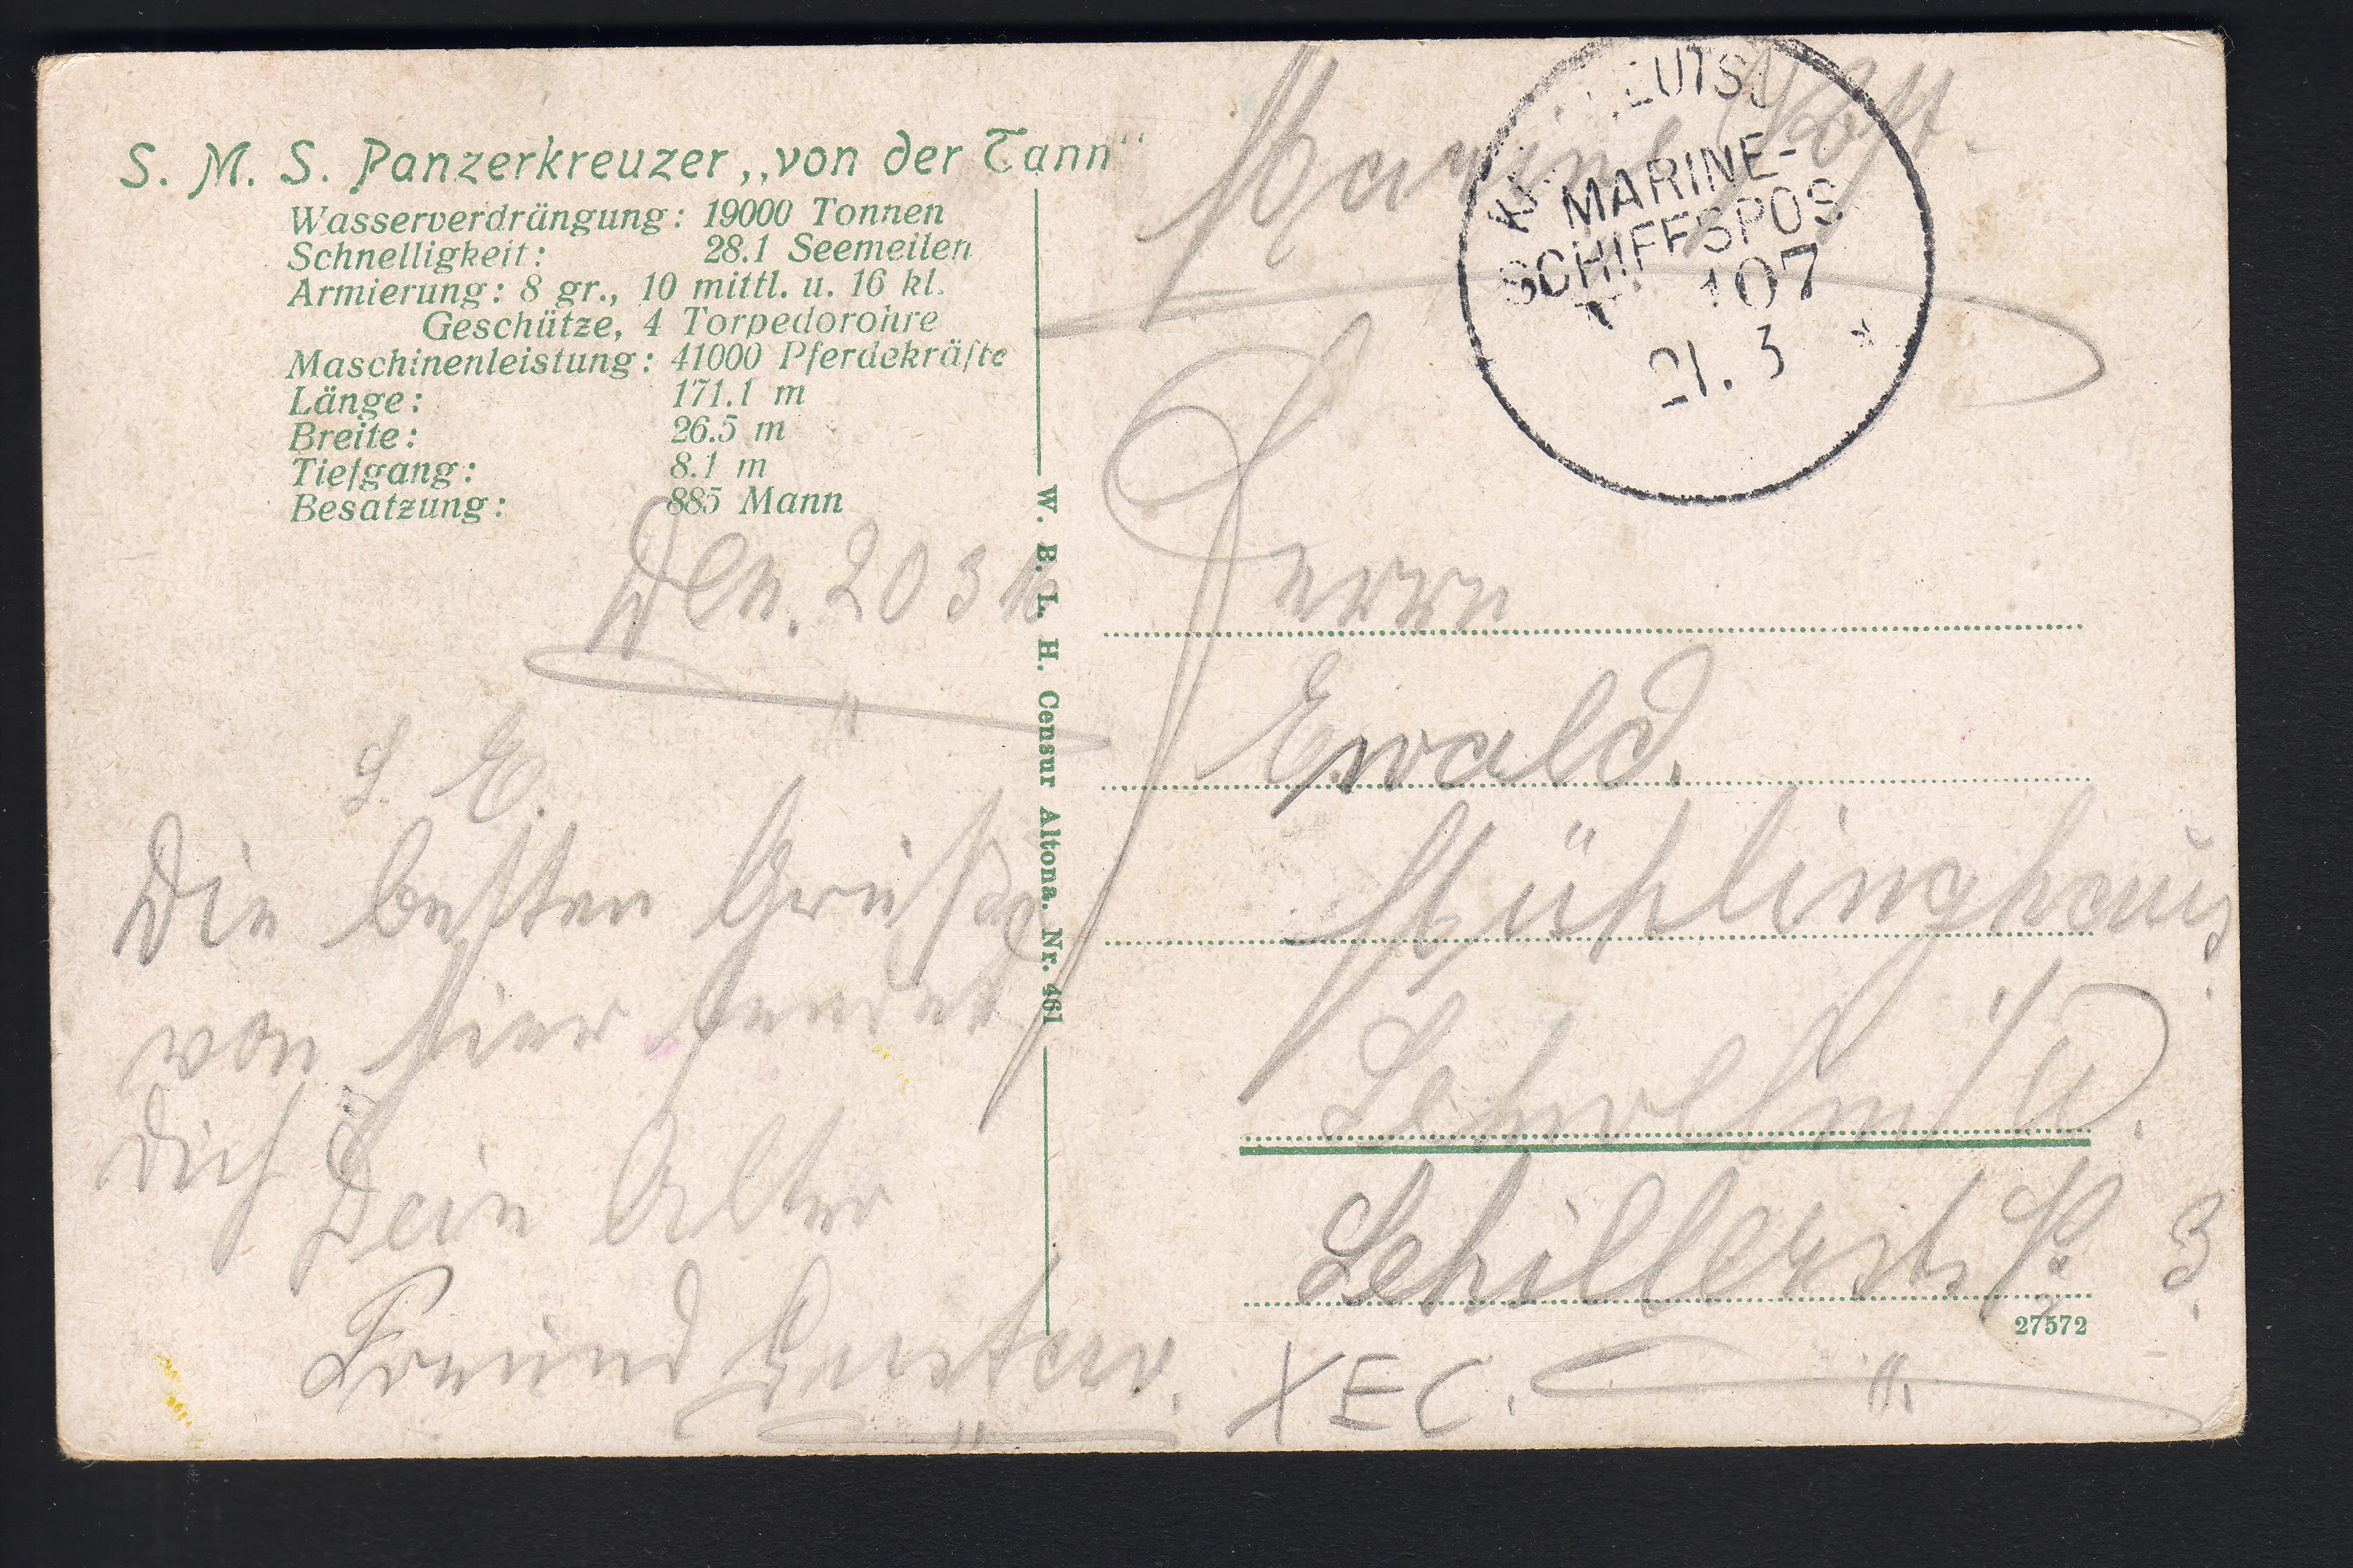 S. M. S. Panzerkreuzer „von der Tann“
Wasserverdrängung: 19000 Tonnen
Schnelligkeit: 28.1 Seemeilen
Armierung: 8 gr., 10 mittl. u. 16 kl.
Geschütze, 4 Torpedorohre
Maschinenleistung: 41000 Pferdekräfte
Länge: 171.1 m
Breite: 26.5 m
Tiefgang: 8.1 m
Besatzung: 885 Mann
Den. 20 3 16
L. E.
Die besten Grüße
von hier sendet
Dich Dein Alter
Freund Gustav.
W. B. L. H. Censur Altona. Nr. 461
Marine Post.
MARINE-
SCHIFFSPOS
107
21. 3
Herrn
Ewald.
Mühlinghaus
Schwelm i/W.
Schillerst. No 3.
27572
XEC.